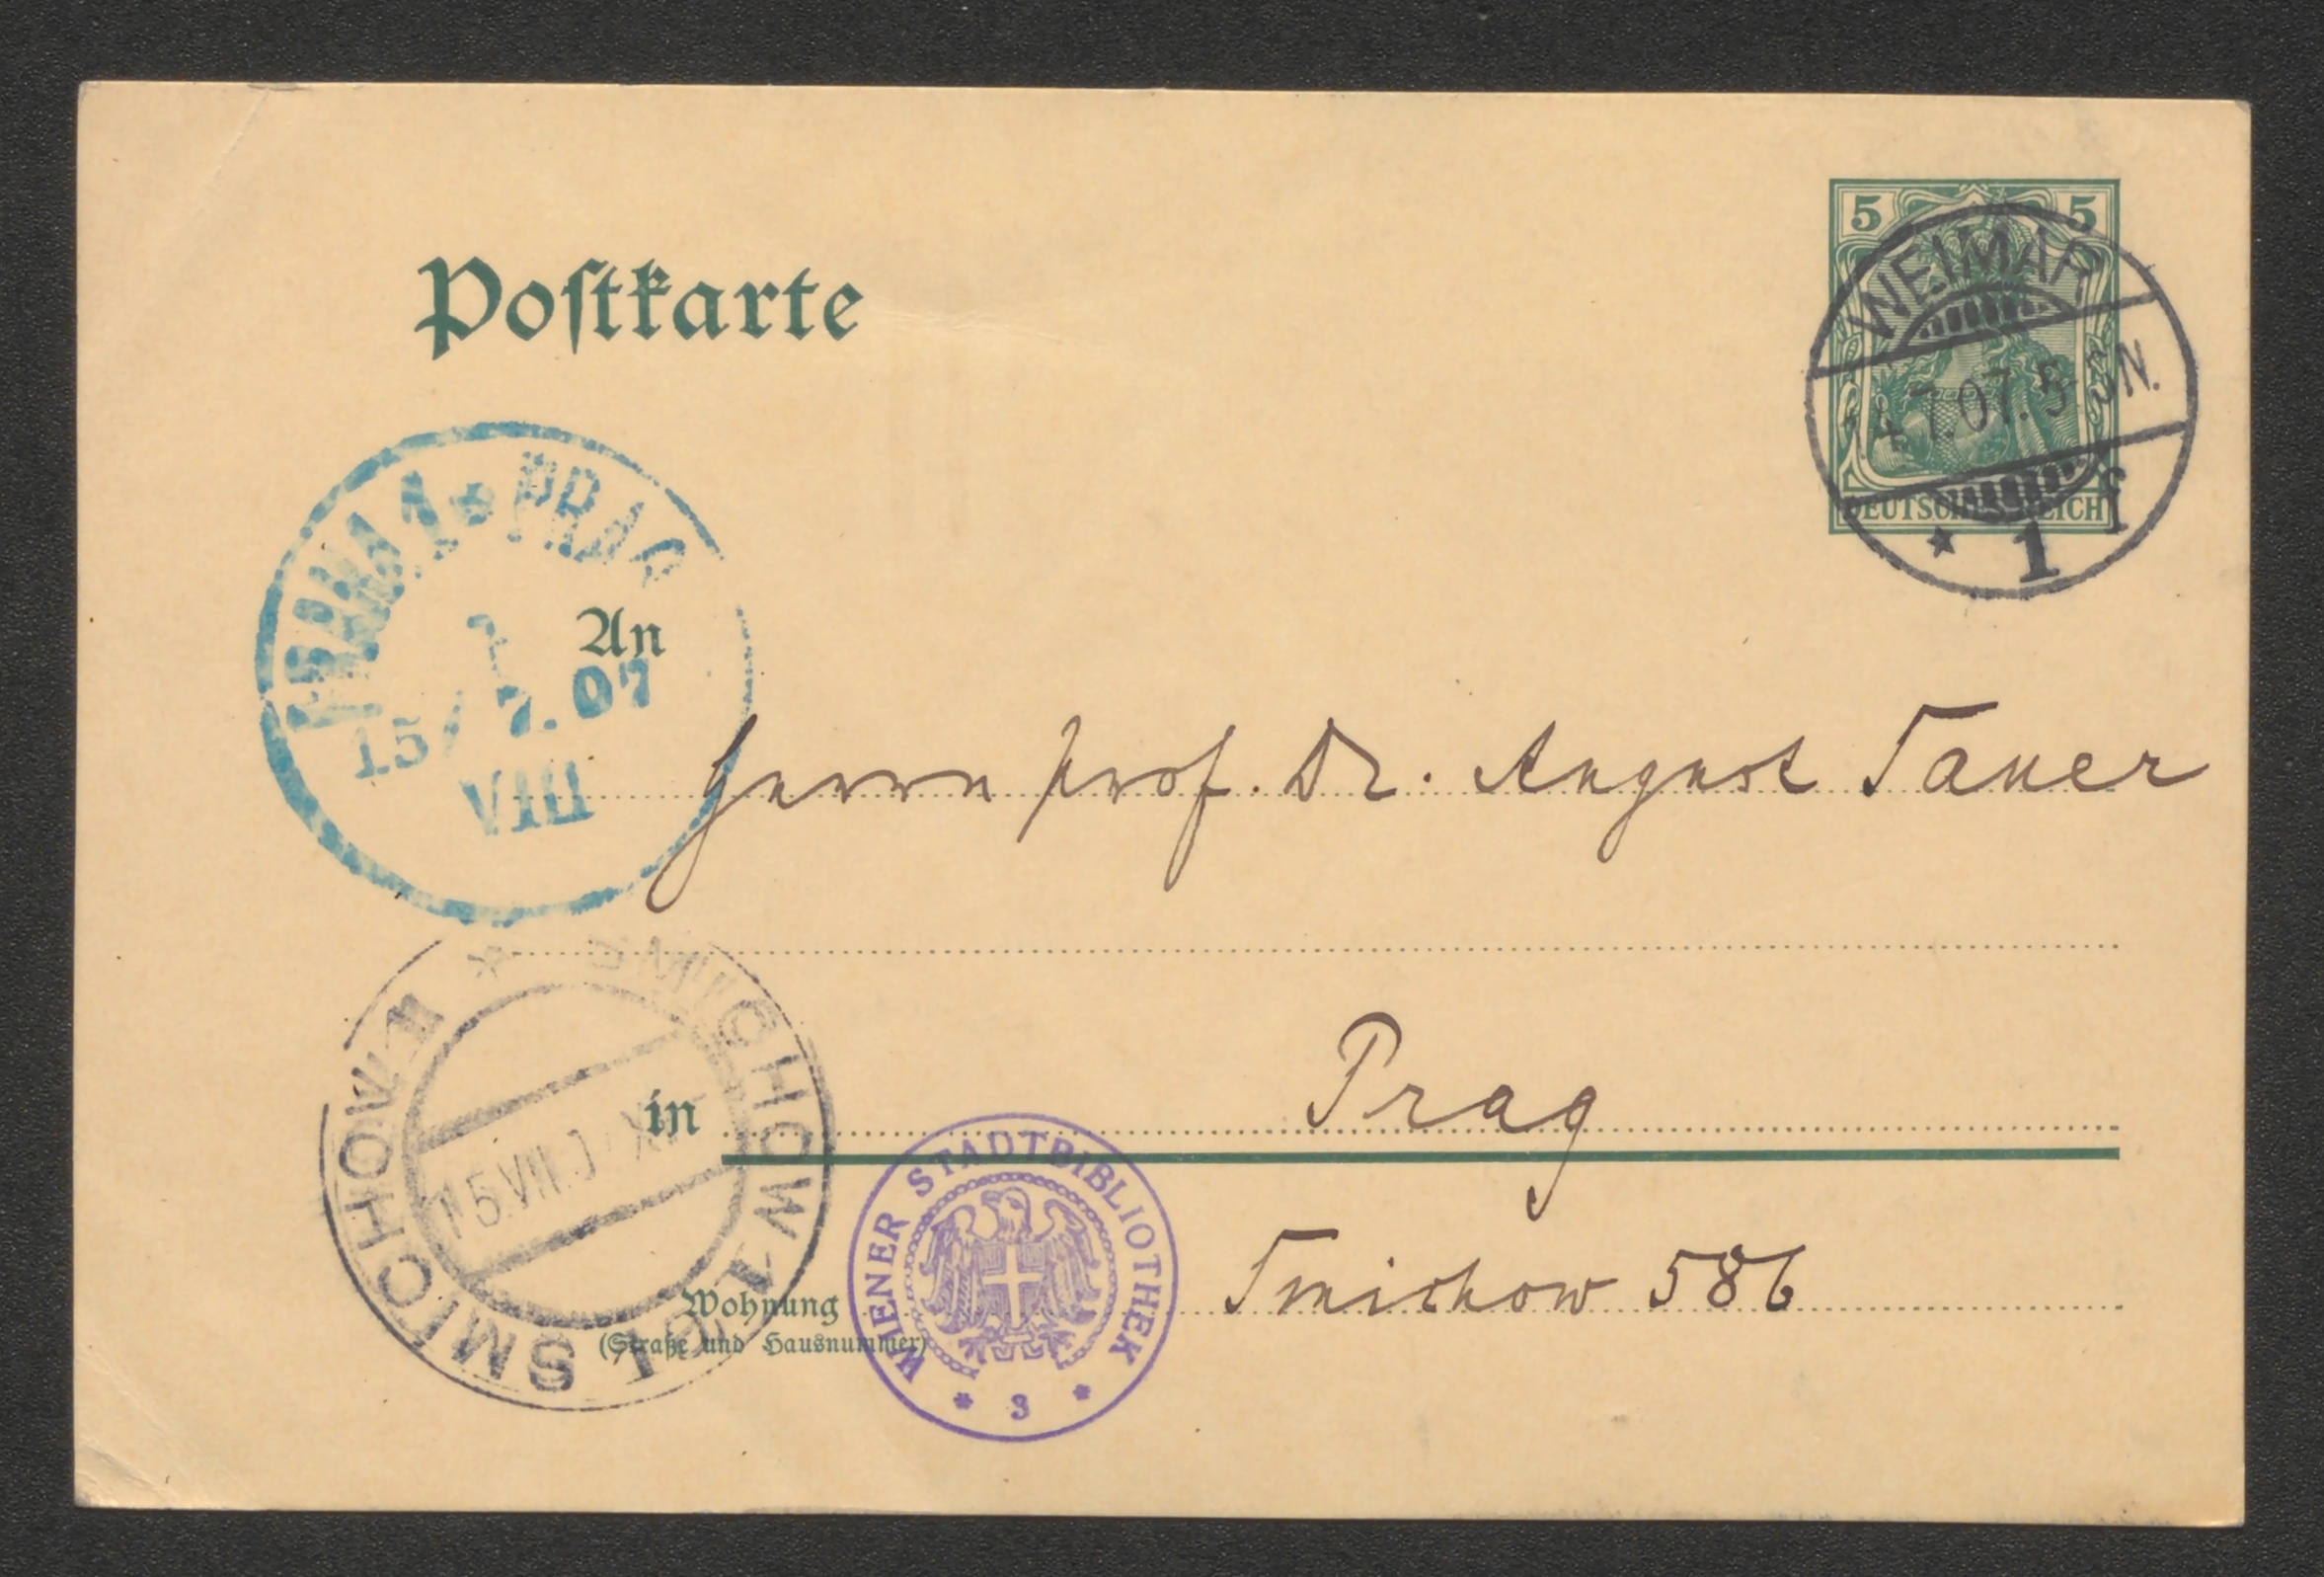 Postkarte
5 5
DEUTSCHES REICH
WEIMAR
14.7.07.5-6N.
* 1 f
PRAHA 1 * PRAG
15/7.07
VIII
An
Herrn Prof. Dr. August Sauer
in Prag
SMICHOW 1 * SMICHOV 1
15.VII.
WIENER STADTBIBLIOTHEK
* 3 *
Wohnung Smichow 586
(Straße und Hausnummer)